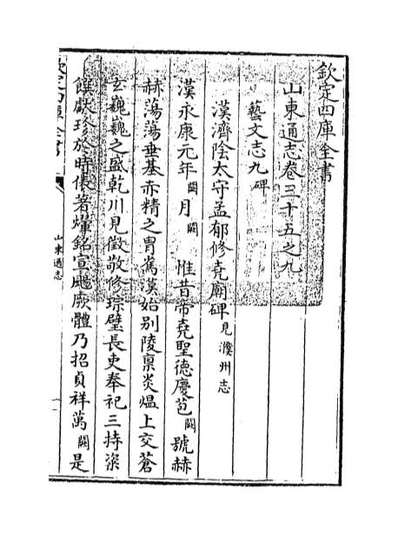 欽定四庫全書
山東通志卷三十五之九
藝文志九碑
漢濟陰太守孟郁修堯廟碑見濮州志
漢永康元年闕月闕惟昔帝堯聖德慶苞闕號赫
赫蕩蕩垂基赤精之胄為漢始别陵禀炎熅上交蒼
玄巍巍之盛乾川見徵敬修琮璧長吏奉祀三持粢
饌獻珍於時俵著煇銘宣颺厥體乃招貞祥萬闕是
山東通志